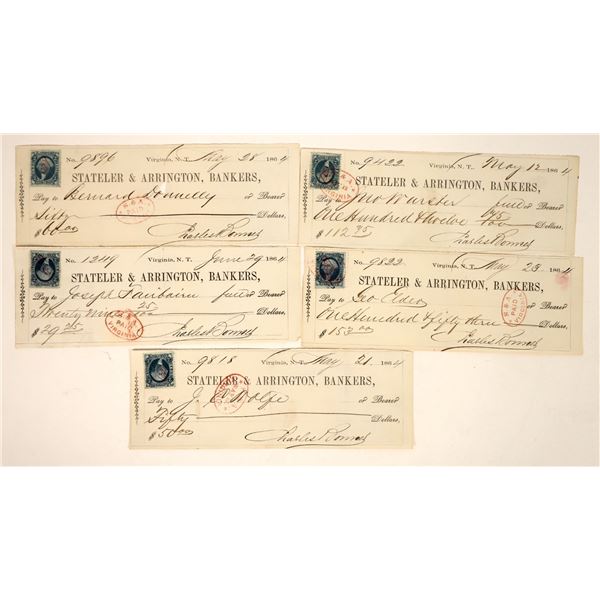 No. 9896 Virginia, N. T. May 28 1864
STATELER & ARRINGTON, BANKERS,
Pay to Bernard Donnelly or Bearer
Sixty Dollars,
$ 60.00
S & A PAID
No. 9422 Virginia, N. T. May 12 1864
STATELER & ARRINGTON, BANKERS,
Pay to Jno or Bearer
One Hundred & Twelve 95/100 Dollars,
$ 112.95
No. 1249 Virginia, N. T. June 29 1864
STATELER & ARRINGTON, BANKERS,
Pay to Joseph Fairbairn or Bearer
Twenty nine 25/100 Dollars,
$ 29.25
S & A PAID VIRGINIA
No. 9822 Virginia, N. T. May 23 1864
STATELER & ARRINGTON, BANKERS,
Pay to Geo or Bearer
One Hundred & fifty three Dollars,
$ 153.00
S & A PAID VIRGINIA
No. 9818 Virginia, N. T. May 21 1864
STATELER & ARRINGTON, BANKERS,
Pay to J. Wolfe or Bearer
Fifty Dollars,
$ 50.00